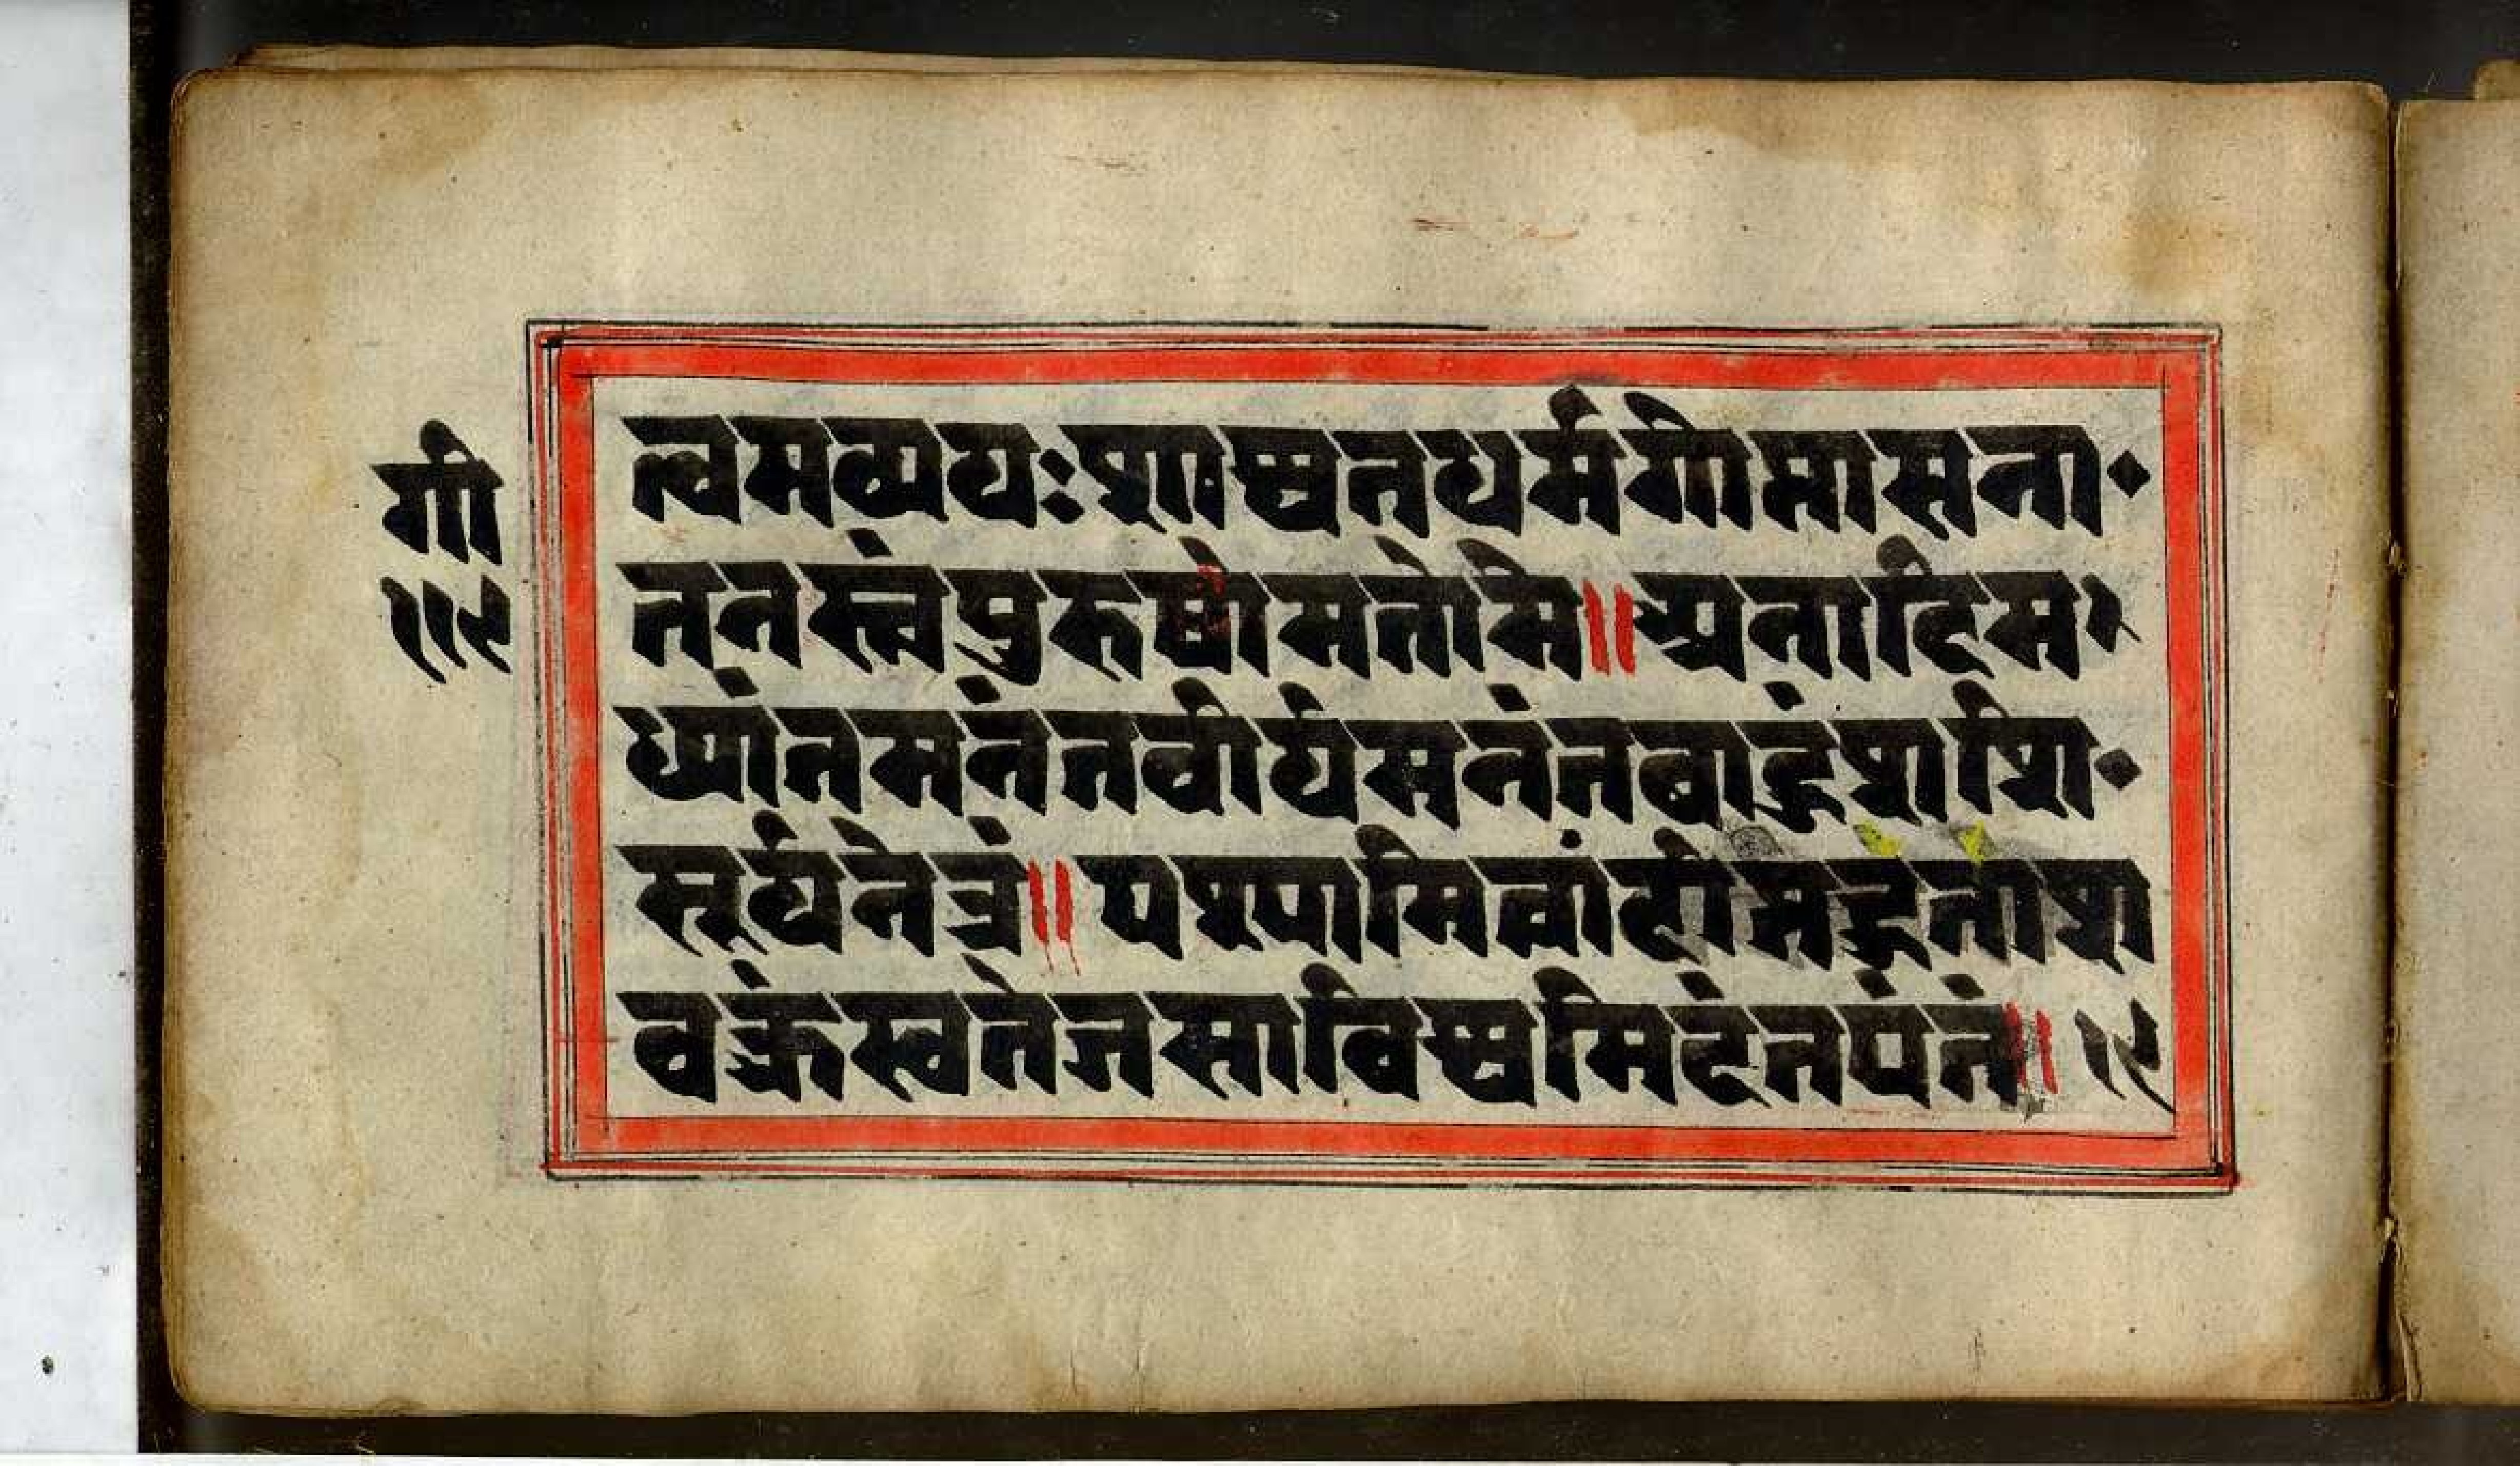 गी
११९
त्वमव्ययःशाश्वतधर्मगोप्तासना
तनस्त्वंपुरुषोमतोमे॥अनादिम
ध्यांतमनंतवीर्यमनंतबाहुंशशि
सूर्यनेत्रं॥पश्यामित्वांदीप्तहुताश
वक्त्रंस्वतेजसाविश्वमिदंतपंतं॥१९